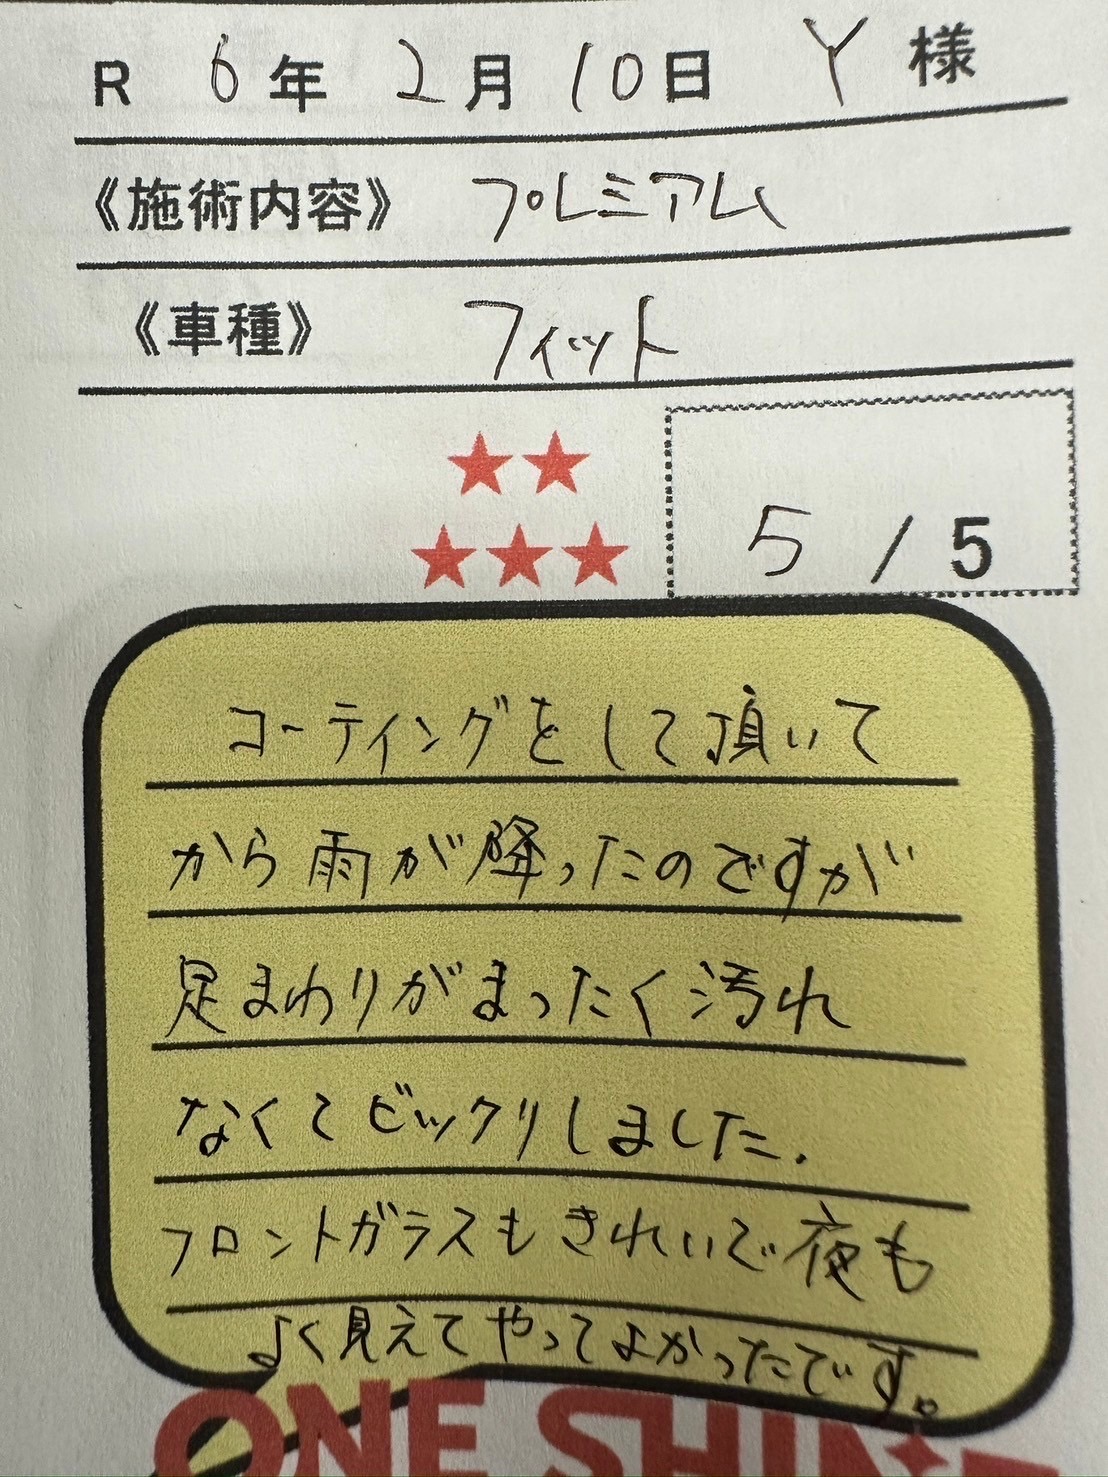 R 6年 2月 10日 Y 様
《施術内容》 プレミアム
《車種》 フィット
★★
★★★
5 / 5
コーティングをして頂いて
から雨が降ったのですが
足まわりがまったく汚れ
なくてビックリしました.
フロントガラスもきれいで夜も
よく見えてやってよかったです。
ONE SHINE